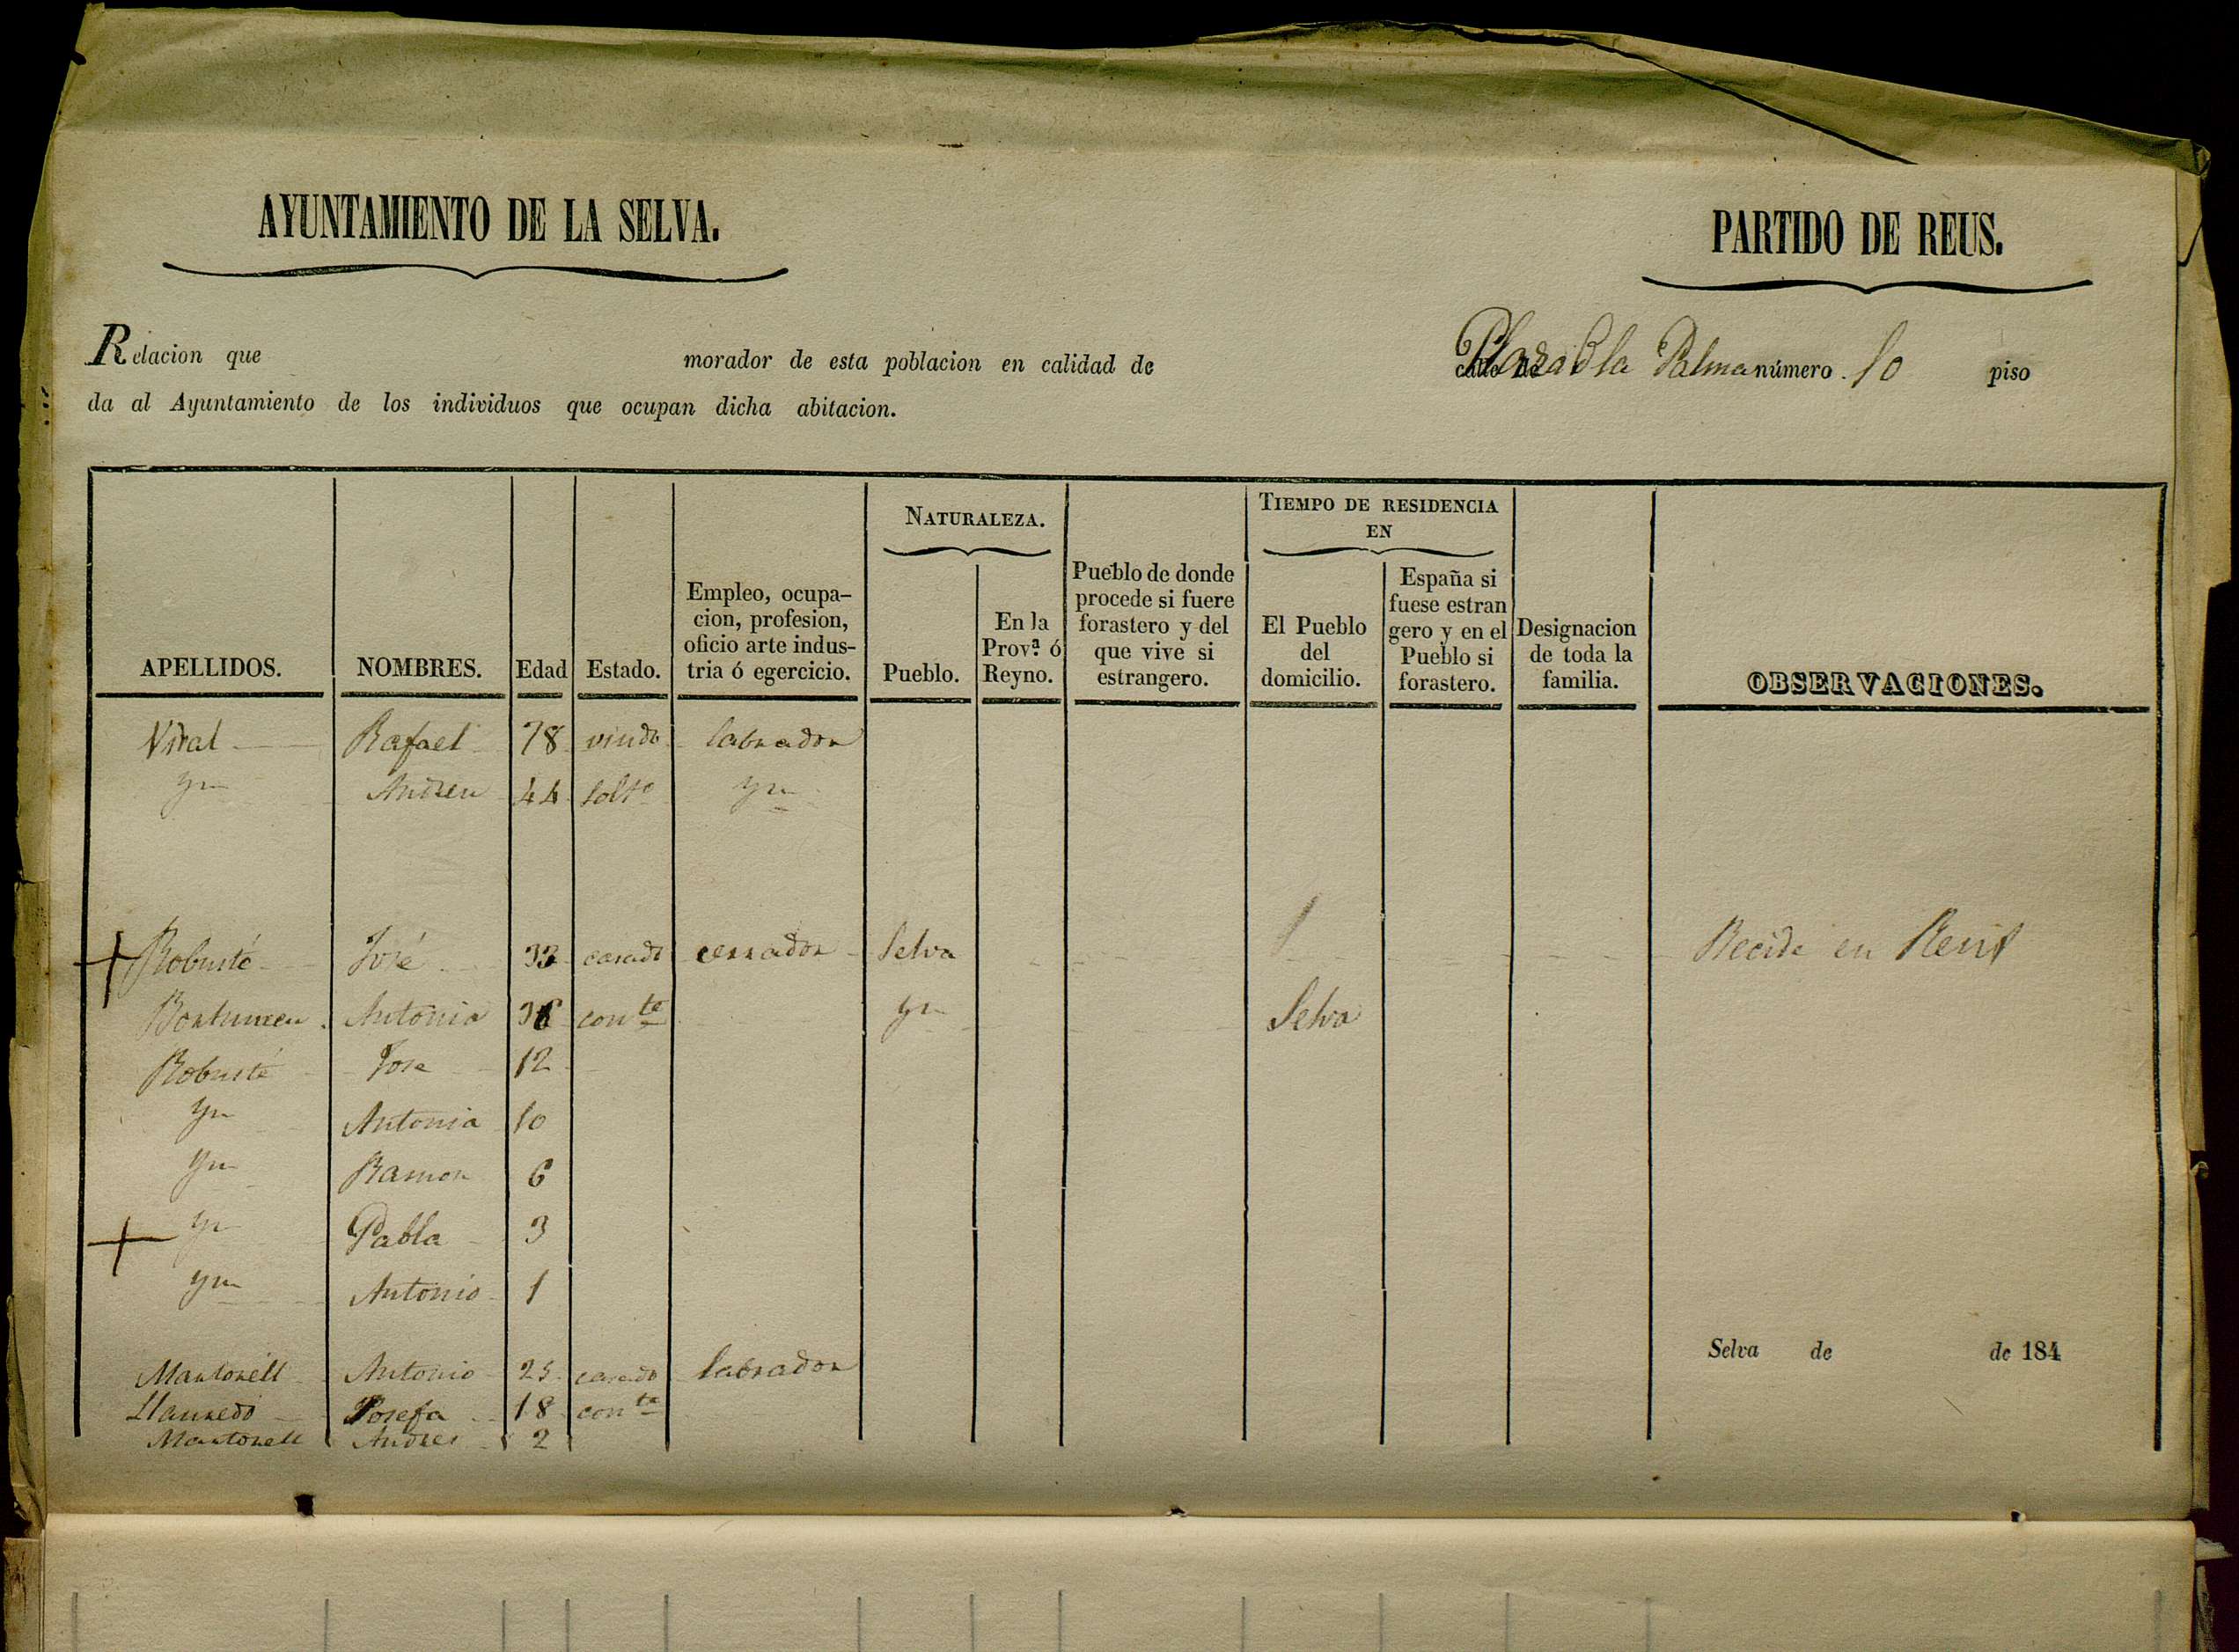 AYUNTAMIENTO DE LA SELVA.
PARTIDO DE REUS.
Relacion que morador de esta poblacion en calidad de Plaza d la Palma número 10 piso
da al Ayuntamiento de los individuos que ocupan dicha abitacion.
NATURALEZA.
TIEMPO DE RESIDENCIA
EN
APELLIDOS.
NOMBRES.
Edad
Estado.
Empleo, ocupa-
cion, profesion,
oficio arte indus-
tria ó egercicio.
Pueblo.
En la
Prov.ª ó
Reyno.
Pueblo de donde
procede si fuere
forastero y del
que vive si
estrangero.
El Pueblo
del
domicilio.
España si
fuese estran
gero y en el
Pueblo si
forastero.
Designacion
de toda la
familia.
OBSERVACIONES.
Vidal Rafael 78 viudo labrador
Yn Andreu 44 solto Yn
Robusté José casado cerrador Selva Recide en Reus
Antonia conte yn Selva
Robusté Jose 12
Yn Antonia 10
Yn Ramon 6
Yn Pabla 3
Yn Antonio 1
Selva de de 184
Martorell Antonio 25 casado labrador
Llauredó Josefa 18 conta
Martorell Andres 2